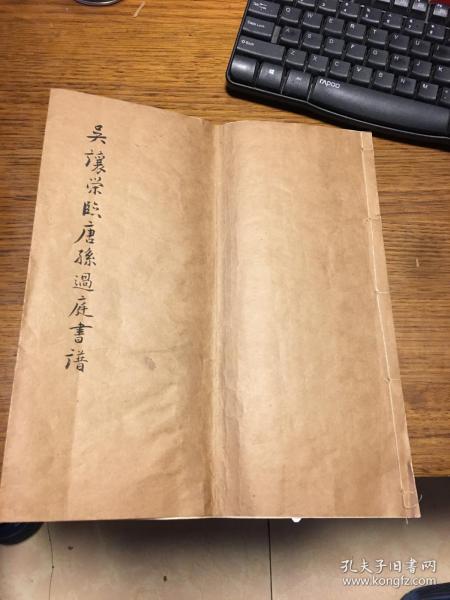 吴让荣临唐孫過庭書譜
rapoo
孔夫子旧书网
www.kongfz.com